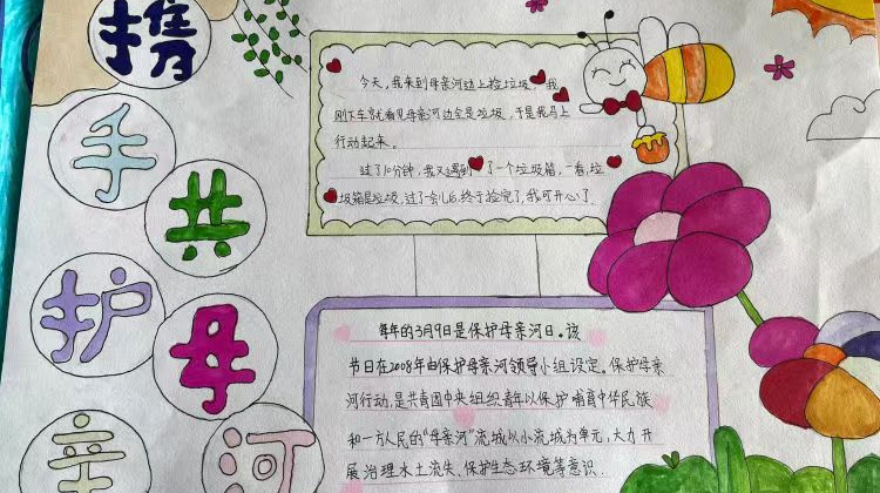 携
手
共
护
母
亲
河
今天,我来到母亲河边上捡垃圾,我
刚下车就看见母亲河边全是垃圾,于是我马上
行动起来。
过了10分钟,我又遇到了一个垃圾箱,一看,垃
圾箱是垃圾,过了一会儿后,终于捡完了,我可开心了
每年的3月9日是保护母亲河日。该
节日在2008年由保护母亲河领导小组设定。保护母亲
河行动,是共青团中央组织青年以保护哺育中华民族
和一方人民的“母亲河”流域以小流域为单元,大力开
展治理水土流失、保护生态环境等意识.